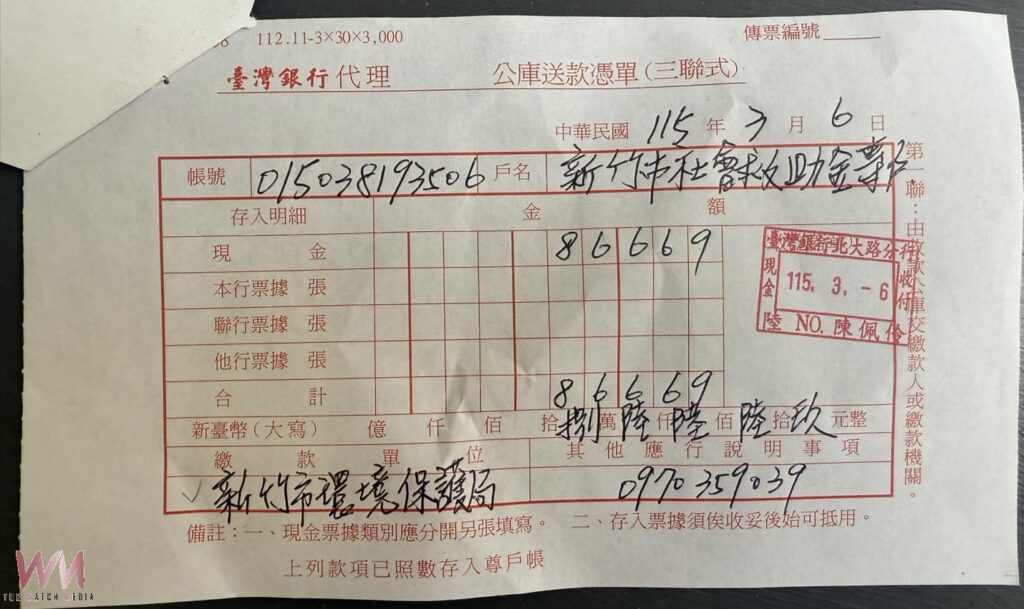 8 112.11-3×30×3,000
傳票編號
臺灣銀行代理 公庫送款憑單(三聯式)
中華民國 115 年 3 月 6 日
帳號 015038193506 戶名 新竹市社會救助金專
存入明細 金額
現金 86669
本行票據 張
聯行票據 張
他行票據 張
合計 86669
新臺幣(大寫) 億 仟 佰 拾 萬 仟 佰 拾 元整
捌 陸 陸 陸 玖
繳款單位 其他應行說明事項
新竹市環境保護局 0970359039
備註:一、現金票據類別應分開另張填寫。 二、存入票據須俟收妥後始可抵用。
上列款項已照數存入尊戶帳
第一聯:由收款公庫交繳款人或繳款機關。
臺灣銀行北大路分行
現金 收付
115. 3. -6
陸 NO. 陳佩伶
WM
THE WATCH MEDIA